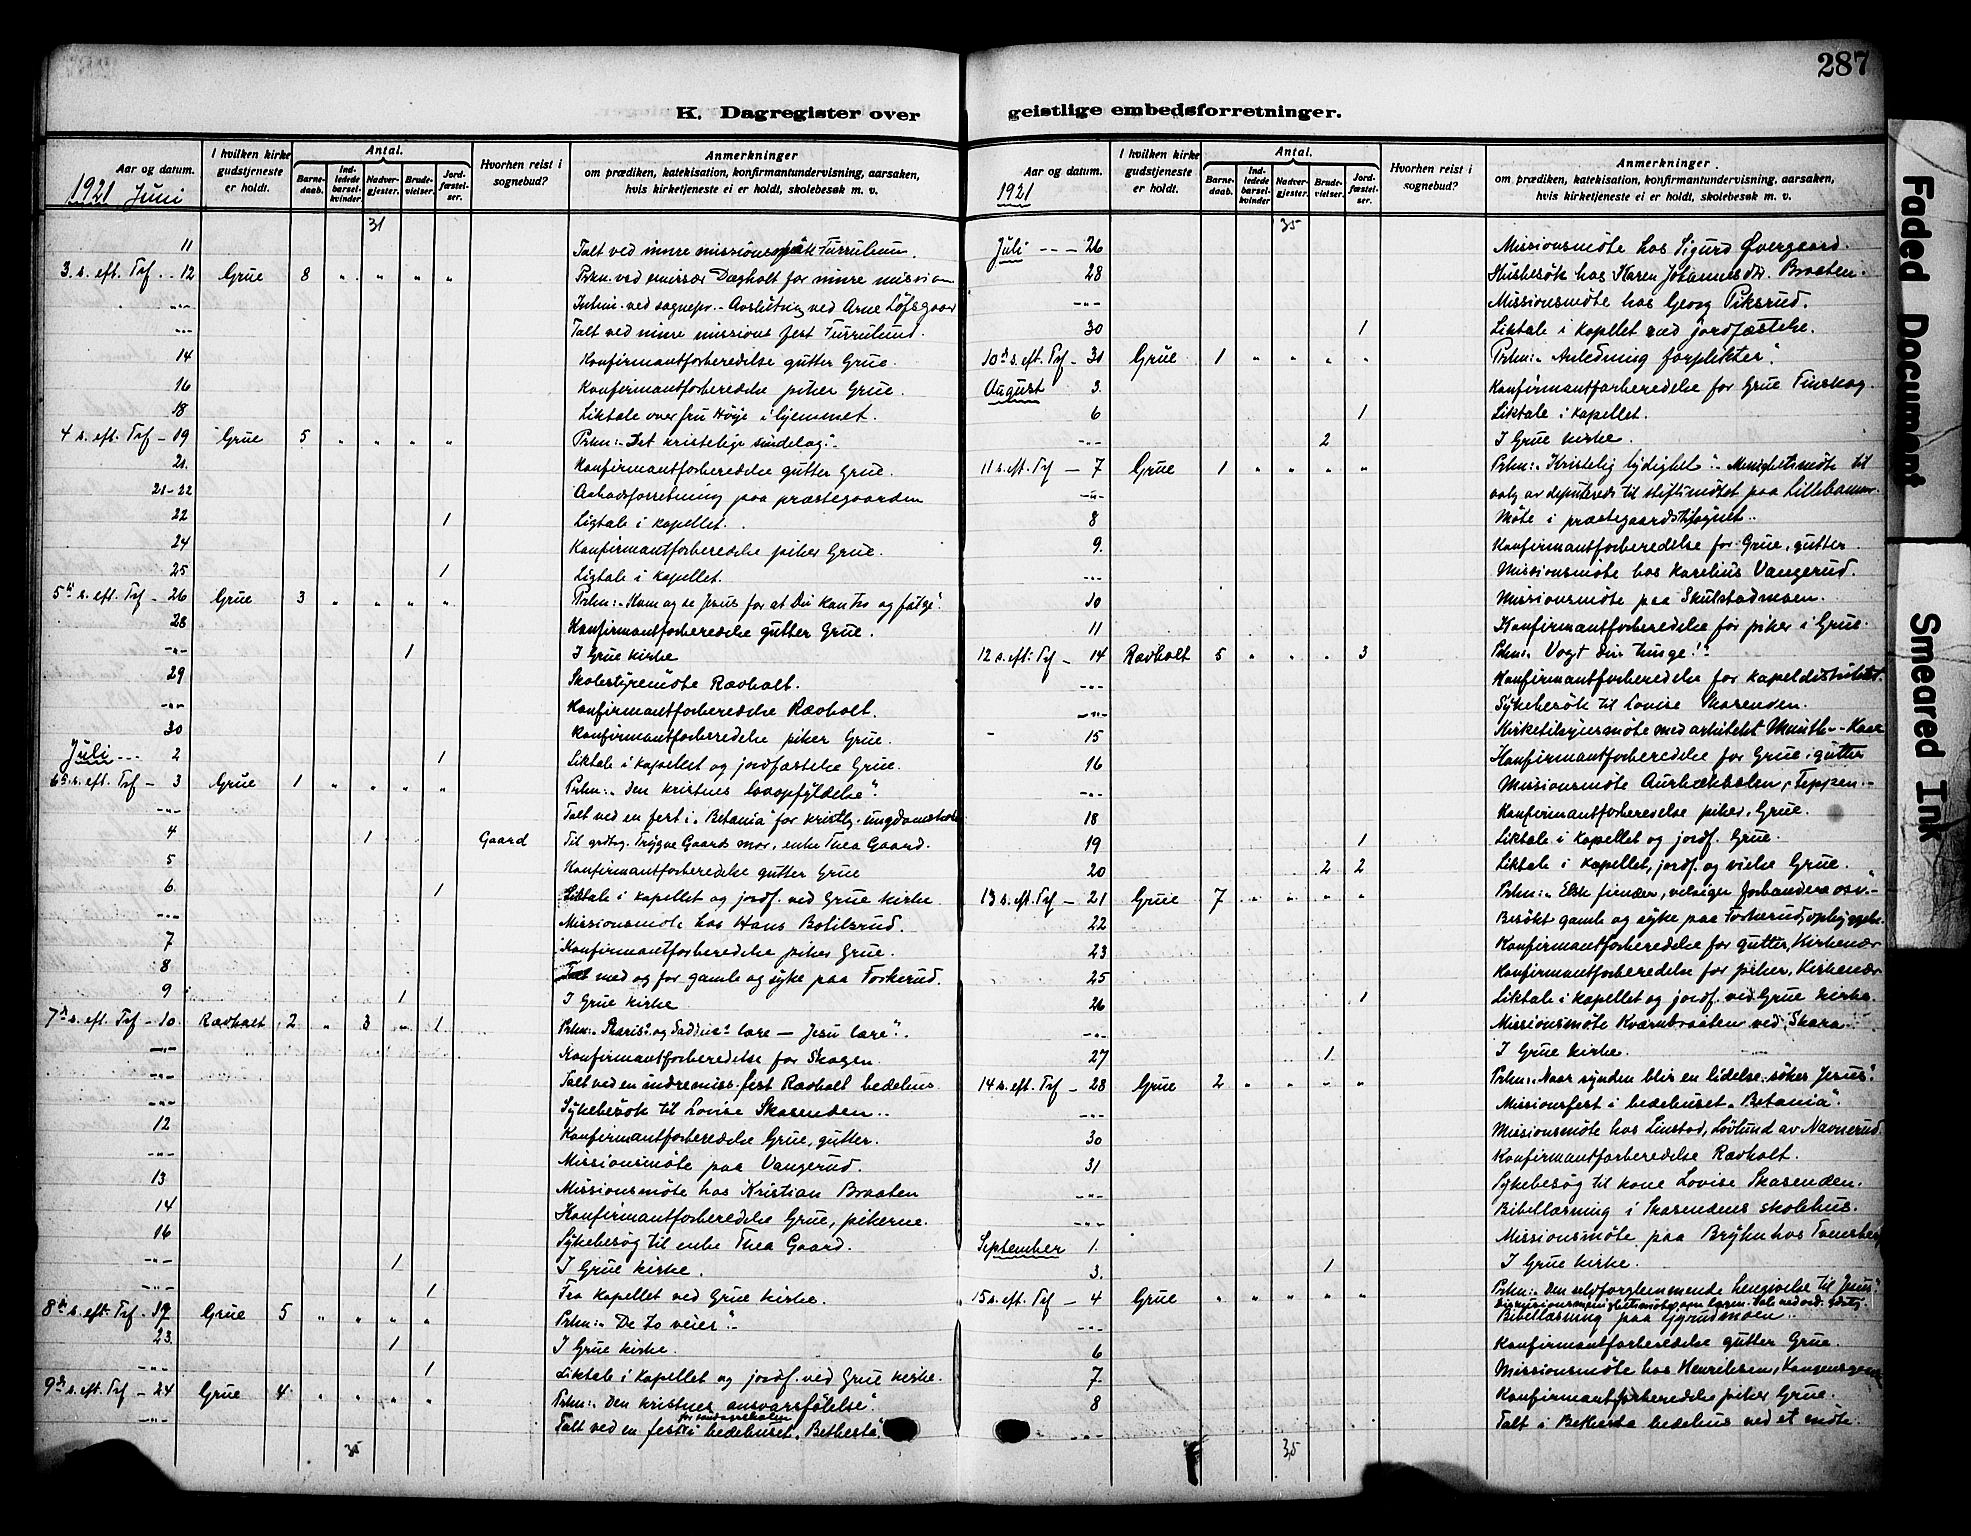 287
K. Dagregister over geistlige embedsforretninger.
Aar og datum. I hvilken kirke gudstjeneste er holdt. Antal. Barne-daab. Ind-ledede barsel-kvinder. Nadver-gjester. Brude-vielser. Jord-fæstel-ser. Hvorhen reist i sognebud? Anmerkninger om prædiken, katekisation, konfirmantundervisning, aarsaken, hvis kirketjeneste ei er holdt, skolebesøk m. v.
1921 Juni
31
11 Talt ved indre missions Furulund.
3. s. eft. Trf. - 12 Grue 8 " " " " Prkn. ved emissær Dagholt for indre mission
-"- Intim. ved sognepr. - Avslutning ved Arne Løfsgaar
-"- Talt ved indre missions fest Furulund.
14 Konfirmantforberedelse gutter Grue.
16 Konfirmantforberedelse piker Grue.
18 Liktale over fru Høije i hjemmet.
4 s. eft. Trf - 19 Grue 5 " " " " Prkn: "Det kristelige sindelag".
21. Konfirmantforberedelse gutter Grue.
21-22 Aabodsforretning paa præstegaarden
22 1 Ligtale i kapellet.
24 Konfirmantforberedelse piker Grue.
25 1 Ligtale i kapellet.
5te s. eft. Trf - 26 Grue 3 " " " " Prkn: "Kom og se Jesus for at Du kan tro og følge".
28 Konfirmantforberedelse gutter Grue.
-"- 1 I Grue kirke
29 Skolestyremøte Ravholt.
-"- Konfirmantforberedelse Ravholt.
30 Konfirmantforberedelse piker Grue.
Juli --- 2 1 Liktale i kapellet og jordfæstelse Grue.
6 s. eft. Trf - 3 Grue 1 " " " " Prkn: "Den kristnes lovopfyldelse".
-"- Talt ved en fest i "Betania" for kristlig ungdomsskole
4 1 Gaard Til grdbr. Trygve Gaards mor, enke Thea Gaard.
5 Konfirmantforberedelse gutter Grue
6 1 Liktale i kapellet og jordf. ved Grue kirke
-"- Missionsmøte hos Hans Botilsrud.
7 Konfirmantforberedelse piker Grue.
8 Talt med og for gamle og syke paa Forkerud.
9 1 I Grue kirke
7de s. eft. Trf - 10 Ravholt 2 " 3 " 1 Prkn: "Faris. og Saddus. lære — Jesu lære".
-"- Konfirmantforberedelse for Skogen.
-"- Talt ved en indremiss. fest Ravholt bedehus
-"- Sykebesøk til Lovise Skasenden.
12 Konfirmantforberedelse Grue, gutter.
-"- Missionsmøte paa Vangerud.
13 Missionsmøte hos Kristian Braaten
14 Konfirmantforberedelse Grue, pikerne.
16 Sykebesøg til enke Thea Gaard.
-"- 1 I Grue kirke.
-"- 1 Fra kapellet ved Grue kirke.
8de s. eft. Trf - 17 Grue 5 " " " " Prkn: "De to veier".
23. 1 I Grue kirke.
-"- 1 Liktale i kapellet og jordf. ved Grue kirke.
9de s. eft. Trf - 24 Grue 4 " " " " Prkn: "Den kristnes ansvarsfølelse".
-"- Talt ved en fest for søndagsskolen i bedehuset "Bethesta"
35
Aar og datum. I hvilken kirke gudstjeneste er holdt. Antal. Barne-daab. Ind-ledede barsel-kvinder. Nadver-gjester. Brude-vielser. Jord-fæstel-ser. Hvorhen reist i sognebud? Anmerkninger om prædiken, katekisation, konfirmantundervisning, aarsaken, hvis kirketjeneste ei er holdt, skolebesøk m. v.
1921
35
Juli --- 26 Missionsmøte hos Sigurd Øvergaard.
28 Husbesøk hos Karen Johannesdtr. Braaten.
-"- Missionsmøte hos Georg Piksrud.
30 1 Liktale i kapellet med jordfæstelse.
10de s. eft. Trf - 31 Grue 1 " " " " Prkn: "Anledning forplikter".
August 3. Konfirmantforberedelse for Grue Finskog.
6 1 Liktale i kapellet.
-"- 2 I Grue kirke.
11 s. eft. Trf — 7 Grue 1 " " " " Prkn: "Kristelig lydighet". Menighetsmøte til
-"- valg av deputerede til stiftsmøtet paa Lillehammer.
8 Møte i præstegaardstilsynet.
9. Konfirmantforberedelse for Grue, gutter
-"- Missionsmøte hos Karelius Vangerud.
10 Missionsmøte paa Skulstadmoen.
11 Konfirmantforberedelse for piker i Grue.
12 s. eft. Trf - 14 Ravholt 5 " " " 3 Prkn: "Vogt din tunge!"
-"- Konfirmantforberedelse for kapeldistriktet.
-"- Sykebesøk til Lovise Skasenden.
15 Kirketilsynsmøte med arkitekt Munthe-Kaas
16 Konfirmantforberedelse for Grue, gutter
-"- Missionsmøte Aurbækbølen, Teppen.
18 Konfirmantforberedelse piker, Grue.
19 1 Liktale i kapellet og jordf. Grue.
20 2 2 Liktale i kapellet, jordf. og vielse Grue.
13 s. eft. Trf — 21 Grue 7 " " " " Prkn: "Elsk fienden, velsigne forbandere osv."
22 Besøkt gamle og syke paa Forkerud, opbyggelse.
23 Konfirmantforberedelse for gutter, Kirkenær
25 Konfirmantforberedelse for piker, Kirkenær
26 1 Liktale i kapellet og jordf. ved Grue kirke.
-"- Missionsmøte Kværnbraaten ved "Skara".
27 1 I Grue kirke.
14 s. eft. Trf — 28 Grue 2 " " " " Prkn: "Naar synden blir en lidelse, søkes Jesus".
-"- Missionsfest i bedehuset "Betania".
30 Missionsmøte hos Linstad, Løvlund av Navnerud.
31 Konfirmantforberedelse Ravholt.
-"- Sykebesøg til kone Lovise Skasenden.
-"- Bibellæsning i Skasendens skolehus.
September 1. Missionsmøte paa Bryhn hos
3. 1 I Grue kirke.
15 s. eft. Trf — 4 Grue " " " " " Prkn: "Den selvforglemmende hengivelse til Jesus".
-"- Bibellæsning paa
6 Konfirmantforberedelse gutter Grue.
7 Missionsmøte hos Henriksen, Kongensgaard
8 Konfirmantforberedelse piker, Grue.
-"- Talt i Bethesta bedehus ved et møte.
35
Faded Document
Smeared Ink